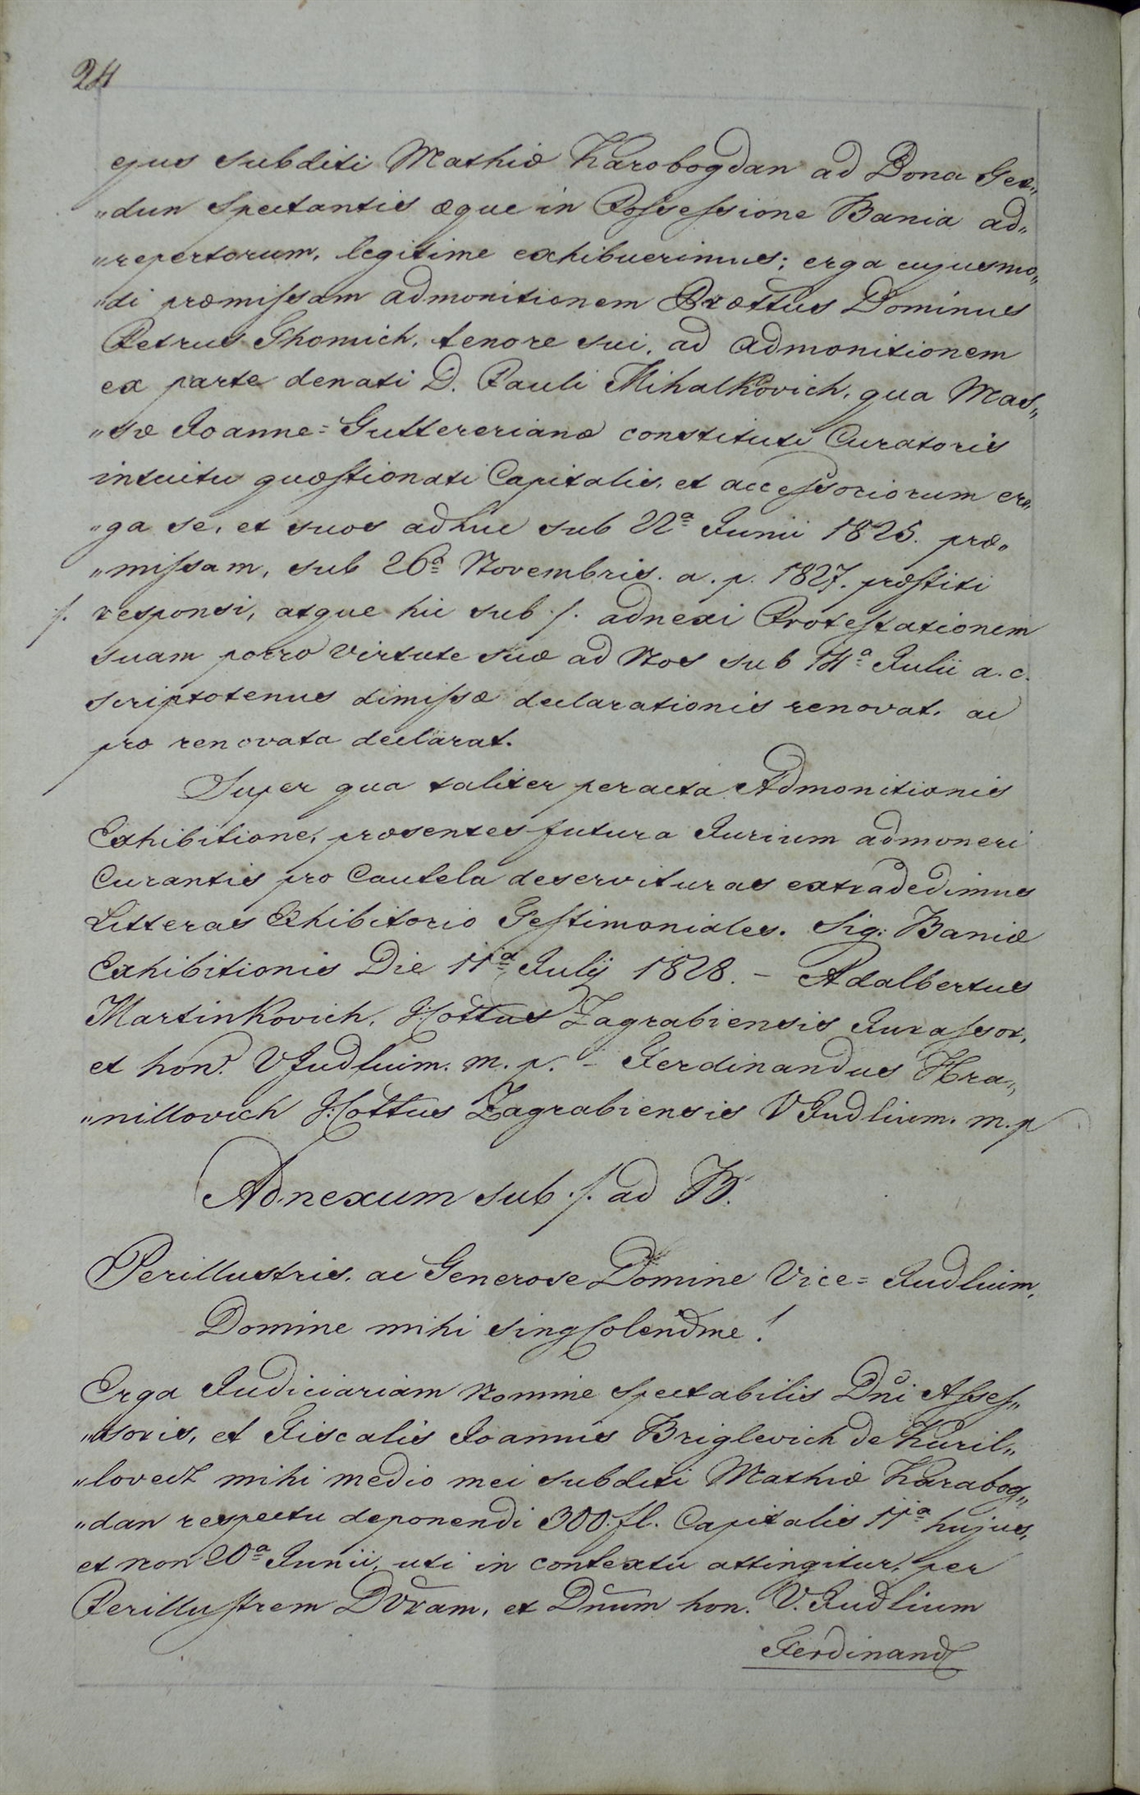 24
ejus subditi Mathiæ Karobogdan ad Bona Ger„
„dun Spectantis æque in Possessione Bania ad„
„repertorum, legitime exhibuerimus; erga cujusmo„
„di præmissam admonitionem Prættus Dominus
Petrus Ghomich, tenore sui, ad admonitionem
ex parte denati D. Pauli Mihalkovich, qua Mas„
„sæ Joanne=Guttererianæ constituti Curatoris
intuitu quæstionati Capitalis, et accessoriorum er„
„ga se, et suos adhuc sub 22ª Junii 1825. præ„
„missam, sub 26ª Novembris. a. p. 1827. præstiti
./. responsi, atque hic sub ./. adnexi Protestationem
suam porro virtute suæ ad Nos sub 14ª Julii a. c.
scriptotenus dimissæ declarationis renovat, ac
pro renovata declarat.
Super qua taliter peracta Admonitionis
Exhibitione, præsentes futura Jurium admoneri
Curantis pro Cautela deservituras extradedimus
Litteras Exhibitorio Testimoniales. Sig: Baniæ
Exhibitionis Die 11ª Julij 1828. – Adalbertus
Martinkovich, I: Cottus Zagrabiensis Jurassor,
et hon. VJudlium. m. p. – Ferdinandus Hra„
„nillovich I: Cottus Zagrabiensis VJudlium. m. p
Adnexum sub ./. ad B.
Perillustris, ac Generose Domine Vice=Judlium,
Domine mihi sing Colendme!
Erga Judiciariam Nomine Spectabilis Dni Asses„
„soris, et Fiscalis Joannis Briglevich de Kuril„
„lovecz mihi medio mei subditi Mathiæ Karabog„
„dan respectu deponendi 300. fl. Capitalis 11ª hujus,
et non 20ª Junii, uti in contextu attingitur, per
Perillustrem DVram, et Dnum hon. V. Judlium
Ferdinand